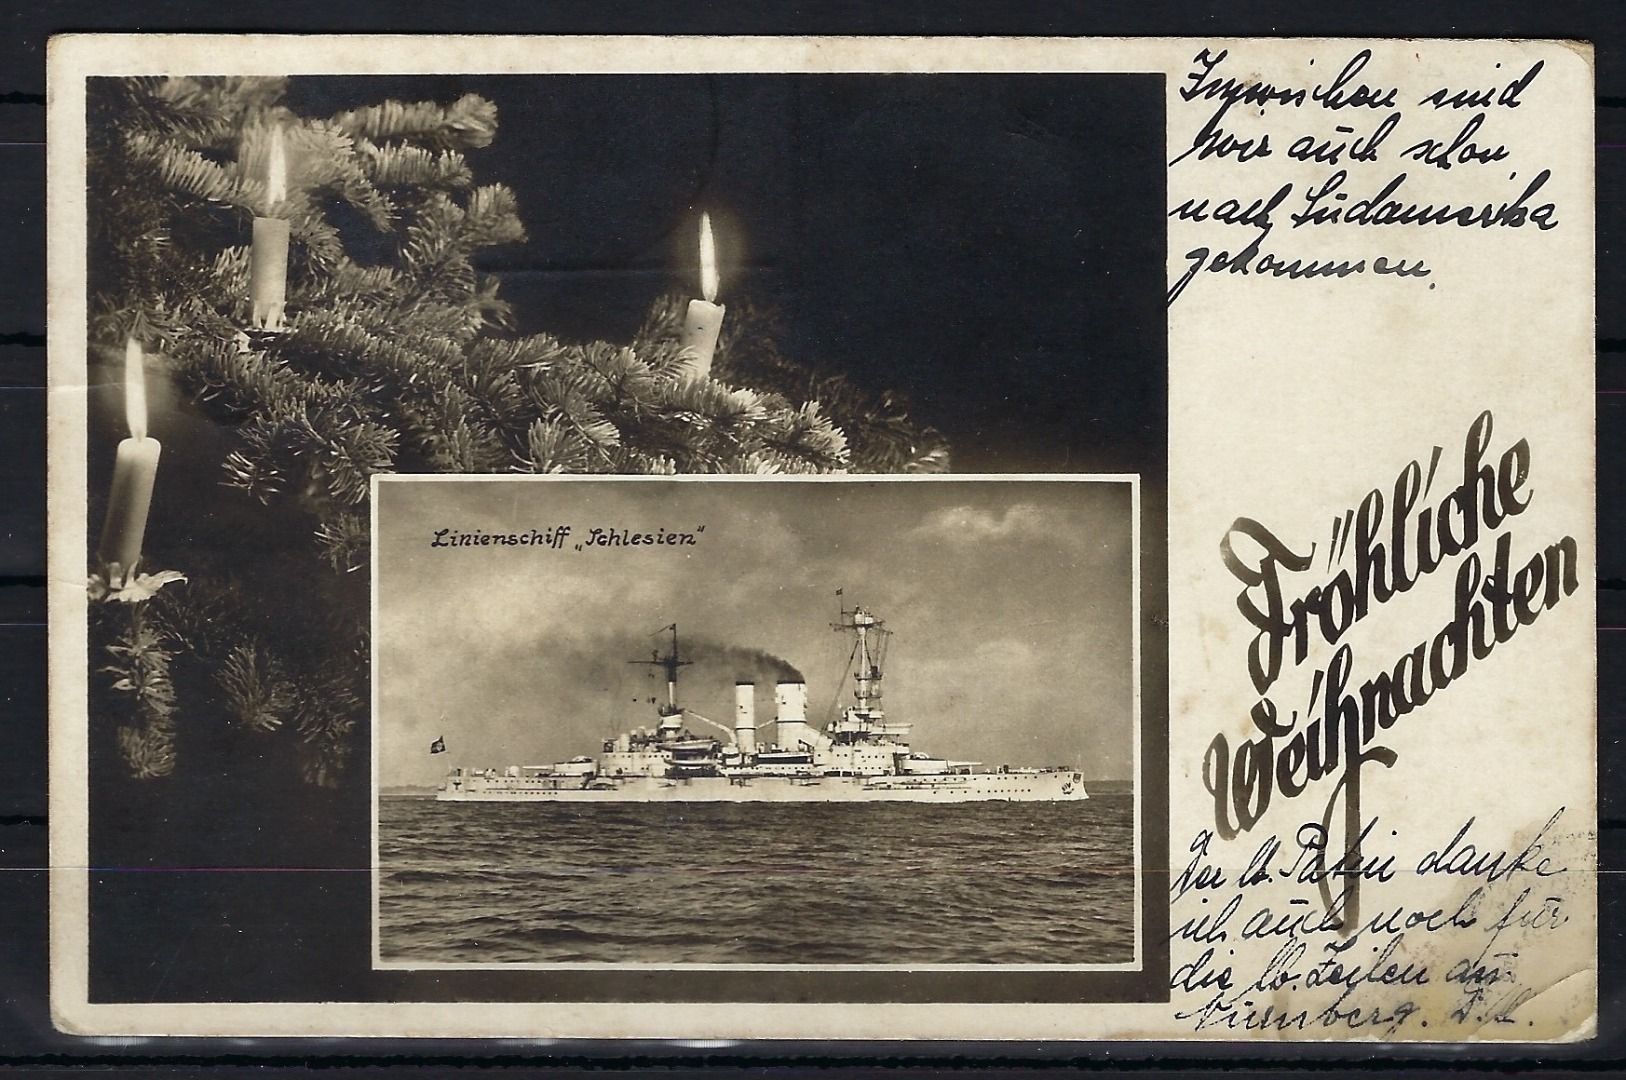 Inzwischen sind
wir auch schon
nach Südamerika
gekommen.
Linienschiff „Schlesien“
Fröhliche
Weihnachten
Der lb. Patin danke
ich auch noch für
die lb. Zeilen aus
Nürnberg.